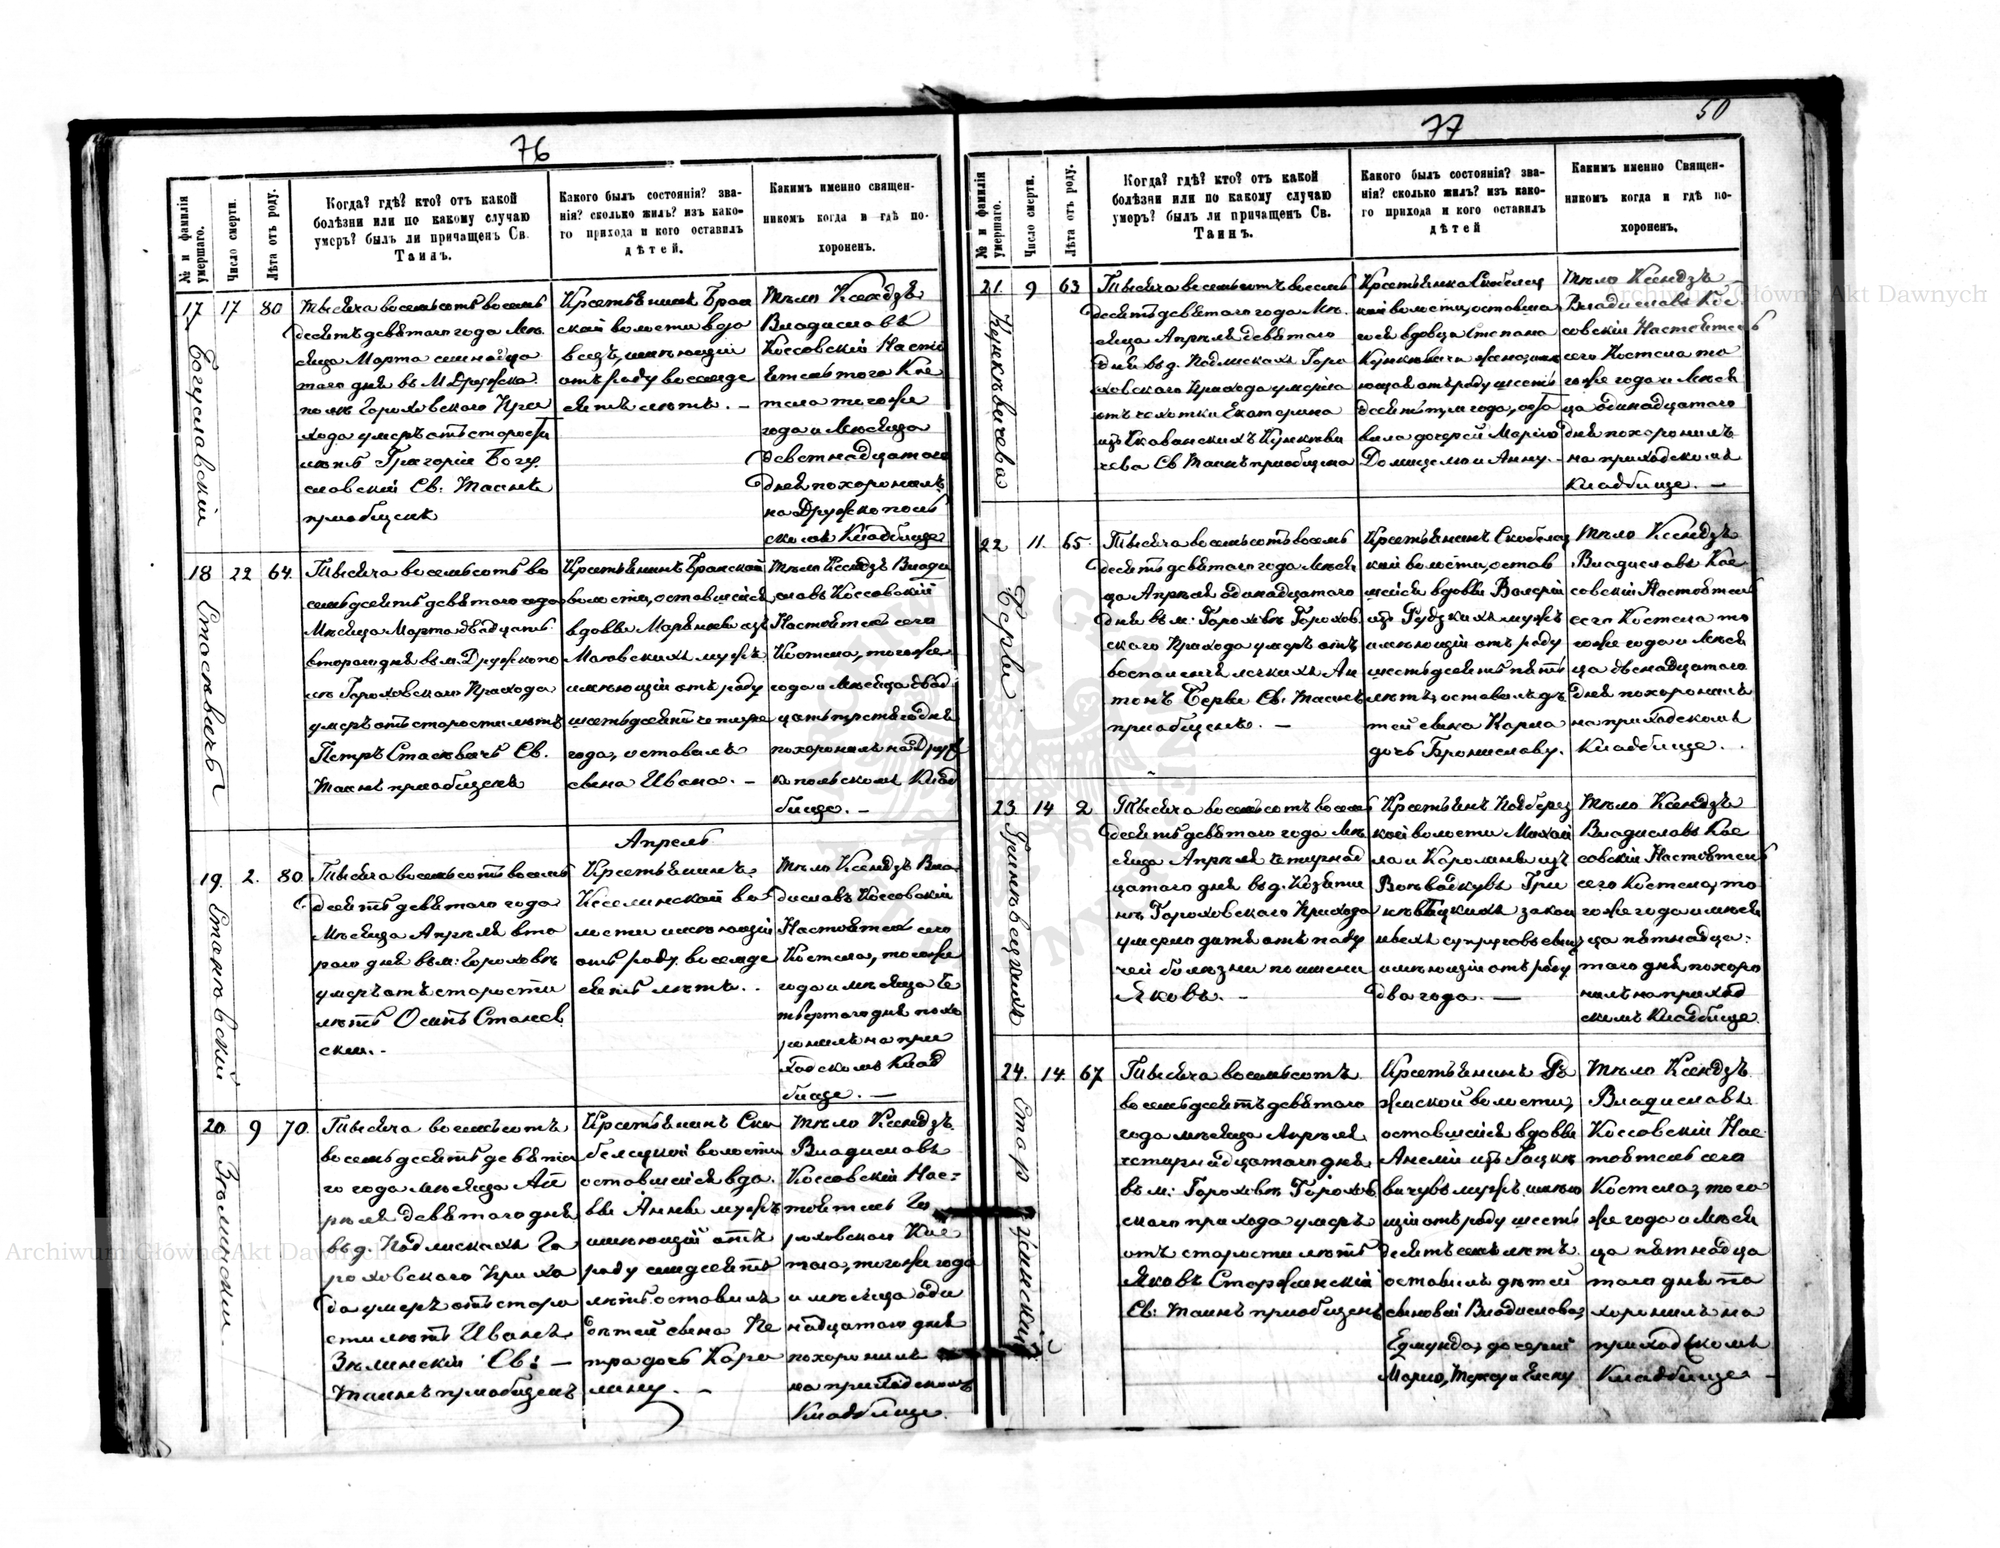 76
№ и фамилія умершаго.
Число смерти.
Лѣта отъ роду.
Когда? гдѣ? кто? отъ какой
болѣзни или по какому случаю
умеръ? былъ ли причащенъ Св.
Таинъ.
Какого былъ состоянія? зва-
нія? сколько жилъ? изъ како-
го прихода и кого оставилъ
дѣтей.
Какимъ именно священ-
никомъ когда и гдѣ по-
хороненъ.
17
Богуславскій
17
80
Тысяча восемьсотъ восемь
десятъ девятого года Мѣ
сяца Марта семнадца
того дня въ М Дружко
полѣ Гороховского При
хода умеръ отъ старости
лѣтъ Григорій Богу
славскій Св. Таинъ
приобщенъ
Крестьянинъ Бран
ской волости вдо
вецъ, имѣющій
отъ роду восемде
сятъ лѣтъ. —
Тѣло Ксендзъ
Владиславъ
Коссовскій Насто
ятель того Кос
тела тогоже
года и Мѣсяца
девятнадцатого
дня похоронилъ
на Дружкополь
скомъ Кладбище
18
Стасѣвичъ
22
64
Тысяча восемьсотъ во
семьдесятъ девятого года
Мѣсяца Марта двадцать
второго дня въ м. Дружкопо
лѣ Гороховского Прихода
умеръ отъ старости лѣтъ
Петръ Стасѣвичъ Св.
Таинъ приобщенъ
Крестьянинъ Бранской
волости, оставшейся
вдовы Марьянны изъ
Маковскихъ мужъ
имѣющій отъ роду
шестьдесятъ четыре
года, оставилъ
сына Ивана. —
Тѣло Ксендзъ Влади
славъ Коссовскій
Настоятель сего
Костела, тогоже
года и Мѣсяца двад
цать третьего дня
похоронилъ на Друж
копольскомъ Клад
бище. —
Апрель
19.
Станѣвскій
2.
80
Тысяча восемьсотъ восемь
десятъ девятого года
Мѣсяца Апрѣля вто
рого дня въ м: Гороховѣ
умеръ отъ старости
лѣтъ Осипъ Станев
скій. -
Крестьянинъ
Киселинской во
лости имѣющій
отъ роду восемде
сятъ лѣтъ. .
Тѣло Ксендзъ Вла
диславъ Коссовскій
Настоятель сего
Костела, тогоже
года и мѣсяца че
твертого дня похо
ронилъ на при
ходскомъ Клад
бище. —
20
Зѣлинскій
9
70
Тысяча восемьсотъ
восемьдесятъ девято
го года мѣсяца Ап
рѣля девятого дня
въ д. Подлискахъ Го
роховского Прихо
да умеръ отъ старо
сти лѣтъ Иванъ
Зѣлинскій Св: —
Таинъ приобщенъ
Крестьянинъ Ско
белецкой волости
оставшейся вдо
вы Анны мужъ
имѣющій отъ
роду семдесятъ
лѣтъ оставилъ
дѣтей сына Пе
тра дочь Каро
лину. —
Тѣло Ксендзъ
Владиславъ
Коссовскій Нас-
тоятель Го
роховского Кос
тела, тогоже года
и мѣсяца оди
надцатого дня
похоронилъ
на приходскомъ
Кладбище.
77
50
№ и фамилія умершаго.
Число смерти.
Лѣта отъ роду.
Когда? гдѣ? кто? отъ какой
болѣзни или по какому случаю
умеръ? былъ ли причащенъ Св.
Таинъ.
Какого былъ состоянія? зва-
нія? сколько жилъ? изъ како-
го прихода и кого оставилъ
дѣтей
Какимъ именно Священ-
никомъ когда и гдѣ по-
хороненъ.
21.
Кункѣвичева
9
63
Тысяча восемьсотъ восемь
десятъ девятого года Мѣ
сяца Апрѣля девятого
дня въ д. Подлискахъ Горо
ховского Прихода умерла
отъ чехотки Екатерина
изъ Кункѣви
чева Св Таинъ приобщена
Крестьянка Скобелец
кой волости, оставша
гося вдовца Степана
Кункѣвича жена имѣ
ющая отъ роду шесть
десятъ три года, оста
вила дочерей Марію
Домицелю и Анну. -
Тѣло Ксендзъ
Владиславъ Кос
совскій Настоятель
сего Костела то
гоже года и Мѣся
ца одинадцатого
дня похоронилъ
на приходскомъ
Кладбище. —
22
Берви
11.
65
Тысяча восемьсотъ восемь
десятъ девятого года Мѣся
ца Апрѣля одинадцатого
дня въ м: Гороховѣ Горохов
ского Прихода умеръ отъ
воспаленія легкихъ Ан
тонъ Берви Св. Таинъ
приобщенъ. —
Крестьянинъ Скобелец
кой волости, остав
шейся вдовы Валерій
изъ Рудзкихъ мужъ
имѣющій отъ роду
шестьдесятъ пять
лѣтъ, оставилъ дѣ
тей сына Карла
дочь Брониславу.
Тѣло Ксендзъ
Владиславъ Кос
совскій Настоятель
сего Костела то
гоже года и Мѣся
ца двенадцатого
дня похоронилъ
на приходскомъ
Кладбище. .
23
14
2
Тысяча восемьсотъ восемь
десятъ девятого года Мѣ
сяца Апрѣля четырнад
цатого дня въ д. Козяти
нѣ Гороховского Прихода
умерло дитя отъ паду
чей болѣзни по имени
Яковъ. —
Крестьянъ Подберез
кой волости Михаи
ла и Каролины изъ
Войцкихъ закон
ныхъ супруговъ сынъ
имѣющій отъ роду
два года. —
Тѣло Ксендзъ
Владиславъ Кос
совскій Настоятель
сего Костела, то
гоже года и мѣся
ца пятнадца-
того дня похоро
нилъ на приход
скомъ Кладбище.
24.
Старжинскій
14.
67
Тысяча восемьсотъ
восемьдесятъ девятого
года мѣсяца Апрѣля
четырнадцатого дня
въ м: Гороховѣ Горохов
ского прихода умеръ
отъ старости лѣтъ
Яковъ Старжинскій
Св: Таинъ приобщенъ
Крестьянинъ
волости,
оставшейся вдовы
Анелій изъ Гацкѣ
вичувъ мужъ имѣю
щій отъ роду шесть
десятъ семь лѣтъ
оставилъ дѣтей
сыновей Владислава,
Едмунда, дочерей
Марію, Теклу и Елену
Тѣло Ксендзъ
Владиславъ
Коссовскій Нас
тоятель сего
Костела, того
же года и Мѣся
ца пятнадца
того дня по
хоронилъ на
приходскомъ
Кладбище -
Archiwum Główne Akt Dawnych
Archiwum Główne Akt Dawnych